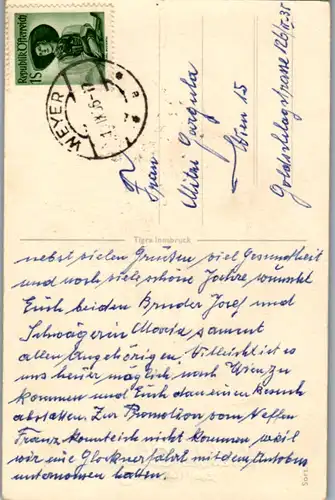 Republik Österreich
1S
WEYER
Frau
Mitzi Gargula
Wien 15
Goldschlagstrasse 126/II-35
Tigra Innsbruck
nebst vielen Grüßen viel Gesundheit
und noch viele schöne Jahre, wünscht
Euch beiden Bruder Josef und
Schwägerin Maria samt
allen Angehörigen. Vielleicht ist es
uns heuer möglich nach Wien zu
kommen und Euch dan einen Besuch
abstatten. Zur Promotion vom Neffen
Franz konnte ich nicht kommen, weil
wir eine Glocknerfahrt mit dem Autobus
unternomen hatten.